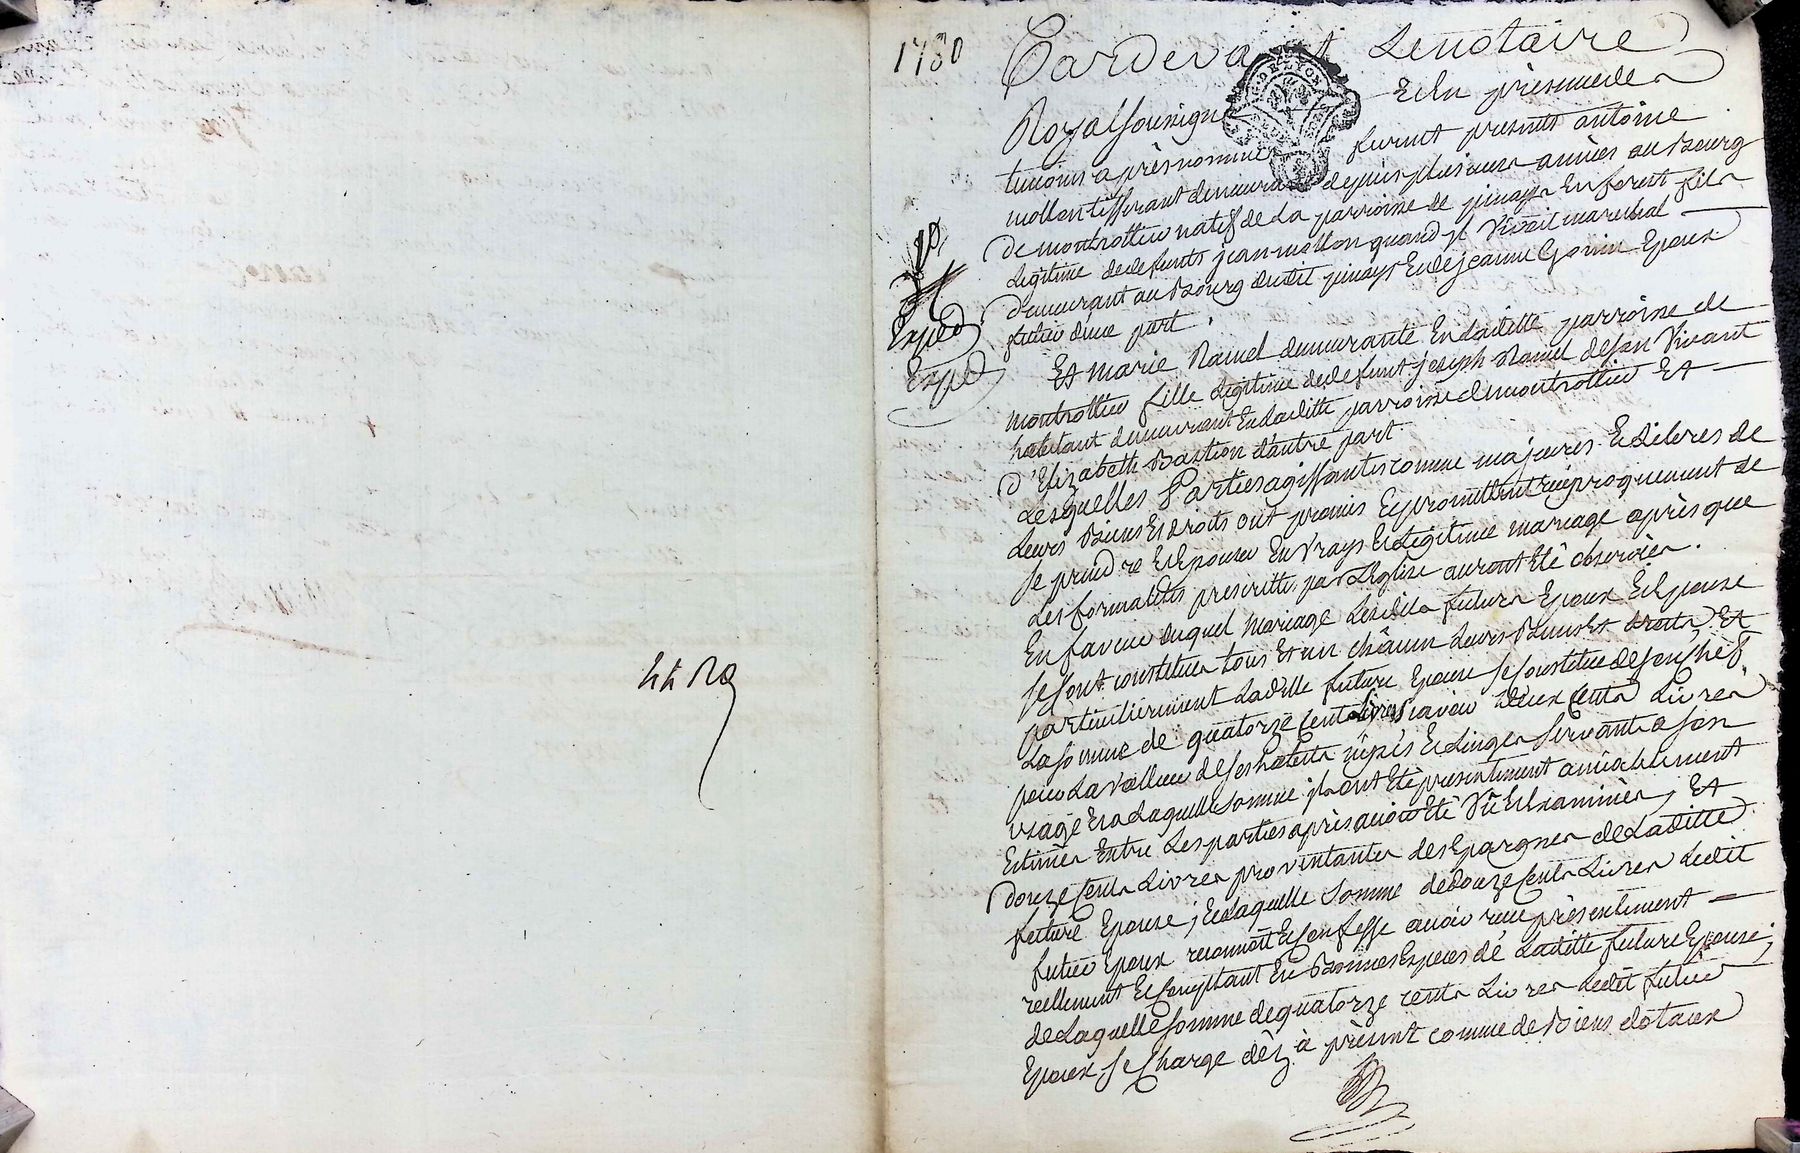 1780
Pardevant Lenotaire
Royal sousigné Et En présence des
temoins aprèsnommés furent presents antoine
mollon tisserant demeurant depuis plusieurs années au Bourg
de montrottier natif de La parroisse de pinayss En forest fils
Légitime de defunts jean mollon quand jl Vivoit marechal
demeurant au Bourg dudit pinays Et de jeanne Gonin Epoux
futur d'une part.
Exped
Exped
Et Marie Ramel demeurante En Laditte parroisse de
montrottier fille Légitime de defunt joseph Ramel de son Vivant
habitant demeurant En Laditte parroisse de montrottier Et
d'Elizabeth Bastion d'autre part
Lesquelles Parties agissantes comme majeures Et Libres de
Leurs Biens Et droits ont promis Et promettent réciproquement de
se prendre Et Epouser En Vrays Et Légitime mariage après que
Les formalités prescrittes par L'Eglise auront Eté observées.
En faveur duquel Mariage Lesdits futurs Epoux Et Epouse
se sont constitués tous Et un châcun Leurs Biens Et droits Et
particulierement Laditte future Epouse se constitue de son Chef
La somme de quatorze cents Livres sçavoir deux Cents Livres
pour La valleur de ses habits nipes Et Linges servants a son
usage Et a Laquelle somme jls ont Eté presentement amiablement
Estimés Entre Les parties après avoir Eté Vû Et Examinés ; Et
douze Cents Livres proventantes des Epargnes de Laditte
future Epouse ; Et Laquelle somme de douze Cents Livres Ledit
futur Epoux reconnoit Et Confesse avoir reçue présentement
réellement Et Comptant En Bonnes Especes de Laditte future Epouse ;
de Laquelle somme de quatorze cents Livres Ledit futur
Epoux se Charge dèz à présent comme de Biens dotaux